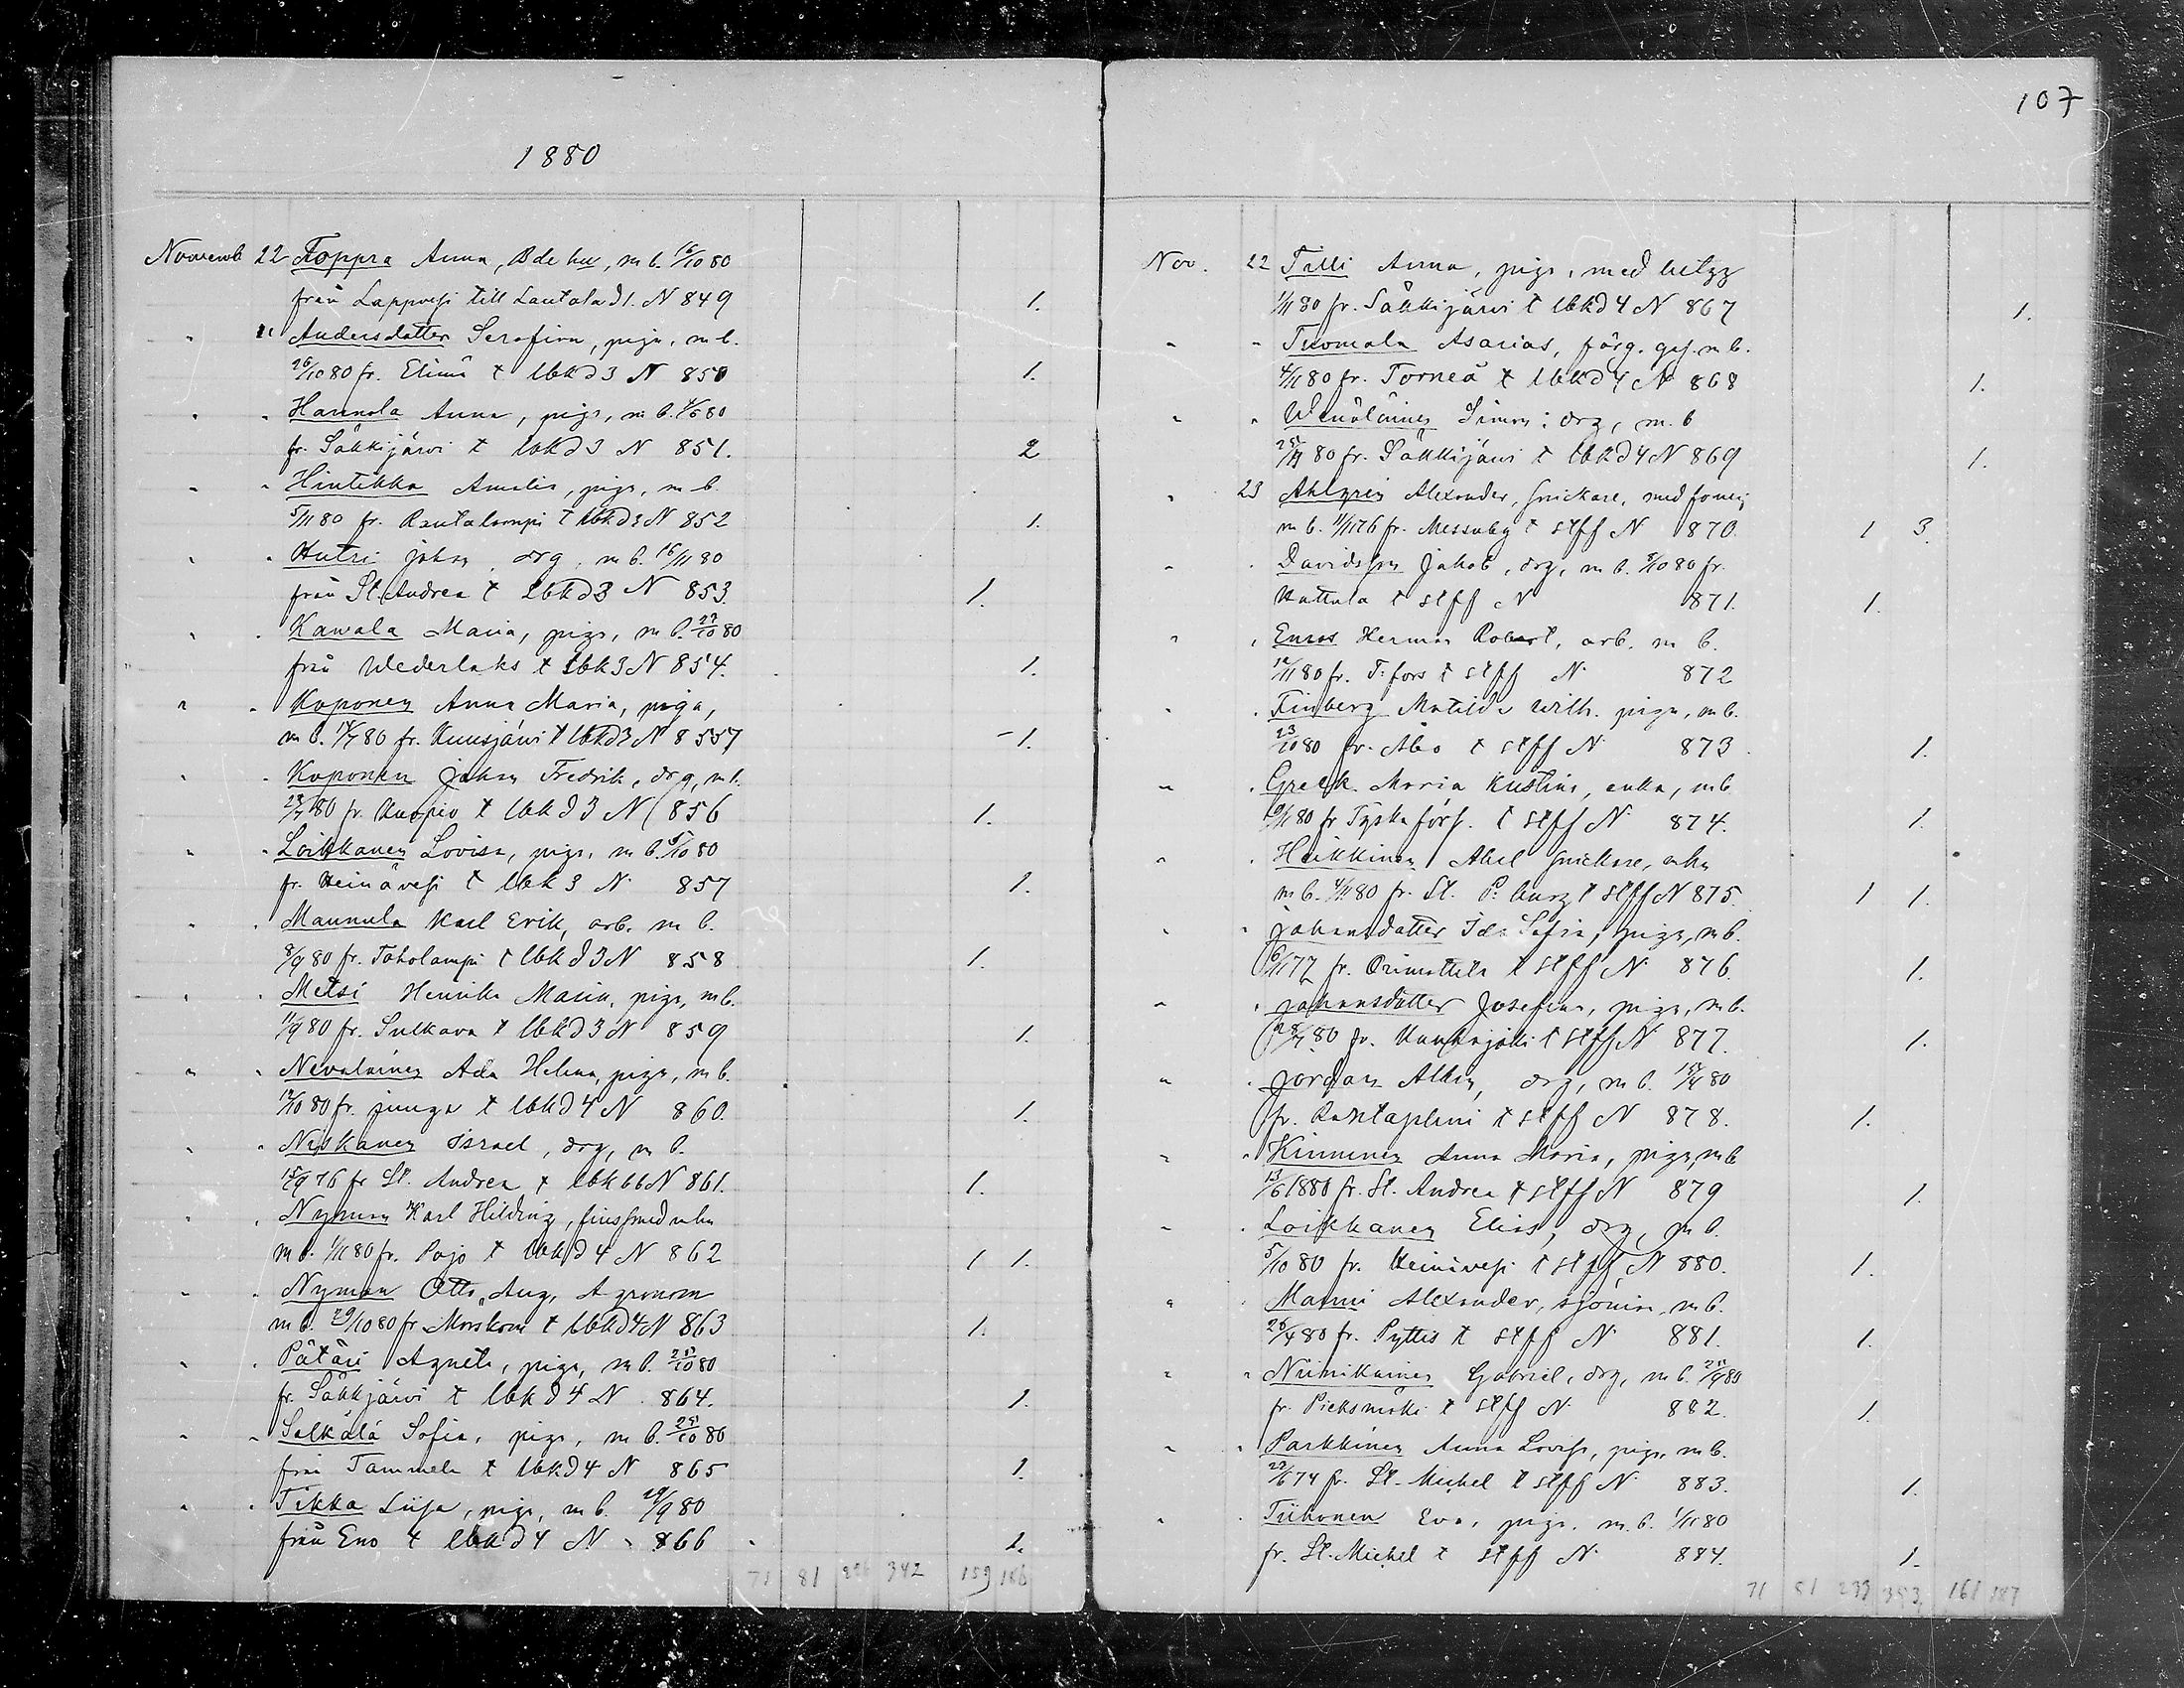 107
1880
Novemb 22 Toppra Anna, Bde hu, m b. 16/10 80
från Lappvesi till Lautala d 1. N 849 1.
" " Andersdotter Serafina, piga, m b.
26/10 80 fr. Elimä t lbk d 3 N 850 1.
" " Hannola Anna, piga, m b. 80
fr. Säkkijärvi t lbk d 3 N 851. 2
" " Hintikka Amalia, piga, m b.
5/11 80 fr. Rautalampi t lbk d 3 N 852 1.
" " Hutri Johan, drg, m b. 16/11 80
från St. Andrea t lbk d 3 N 853. 1.
" " Kawala Maria, piga, m b. 27/10 80
från Wederlaks t lbk 3 N 854. 1.
" " Koponen Anna Maria, piga,
m b. 80 fr. Kuusjärvi t lbk d 3 N 8557 1.
" " Koponen Johan Fredrik, drg, m b.
80 fr. Kuopio t lbk d 3 N 856 1.
" " Loikkanen Lovisa, piga, m b. 5/10 80
fr. Heinävesi t lbk 3 N 857 1.
" " Mannula Karl Erik, arb. m b.
8/9 80 fr. Toholampi t lbk d 3 N 858 1.
" " Metsi Henrika Maria, piga, m b.
11/9 80 fr. Sulkava t lbk d 3 N 859 1.
" " Nevalainen Ada Helena, piga, m b.
12/10 80 fr. Junga t lbk d 4 N 860. 1.
" " Niskanen Israel, drg, m b.
15/9 76 fr St. Andrea t lbk 66 N 861. 1.
" " Nyman Karl Hilding, finsmed m hu
m b. 1/11 80 fr. Pojo t lbk d 4 N 862 1 1.
" " Nyman Otto Aug. Agronom
m b. 29/10 80 fr Morskom t lbk d 4 N 863 1.
" " Pätäri Agneta, piga, m b. 25/10 80
fr. Säkkjärvi t lbk d 4 N 864. 1.
" " Salkälä Sofia, piga, m b. 25/10 80
från Tammela t lbk d 4 N 865 1.
" " Tikka Liisa, piga, m b. 80
från Eno t lbk d 4 N 866 1.
71 81 342 159 186
Nov. 22 Tilli Anna, piga, med betyg
1/11 80 fr. Säkkijärvi t lbk d 4 N 867 1.
" " Tuomala Asarias, färg. ges. m b.
4/11 80 fr. Torneå t lbk d 4 N 868 1.
" " Wenäläinen Simon: drg, m. b
80 fr. Säkkijärvi t lbk d 4 N 869 1.
" 23 Ahlgren Alexander, snickare, med familj
m b. 11/11 76 fr. Messuby t stff N 870. 1 3.
" " Davidsson Jakob, drg, m b. 8/10 80 fr.
Hattula t stff N 871. 1.
" " Enros Herman Robert, arb. m b.
12/11 80 fr. T:fors t stff N 872
" " Finberg Matilda Wilh. piga, m b.
23/10 80 fr. Åbo t stff N 873. 1.
" " Greek Maria Kristina, enka, m b
9/11 80 fr Tyska förs. t stff N 874. 1.
" " Heikkinen Abel snickare, m hu
m b. 4/11 80 fr. St. P:burg t stff N 875. 1 1.
" " Johansdotter Ida Sofia, piga, m b.
6/11 77 fr. Orimattila t stff N 876. 1.
" " Johansdotter Josefina, piga, m b.
80 fr. Kauhajoki t stff N 877. 1.
" " Jordan Albin, drg, m b. 80
fr. Rantaplumi t stff N 878. 1.
" " Kinnunen Anna Maria, piga, m b
13/6 1880 fr. St. Andrea t stff N 879 1.
" " Loikkanen Elias, drg, m b.
5/10 80 fr. Heinävesi t stff N 880. 1.
" " Manni Alexander, sjöman, m b.
80 fr. Pyttis t stff N 881. 1.
" " Niinikainen Gabriel, drg, m b. 80
fr. Pieksmäki t stff N 882. 1.
" " Parkkinen Anna Lovisa, piga, m b.
74 fr. St. Michel t stff N 883. 1.
" " Tiihonen Eva, piga. m. b. 80
fr. St. Michel t stff N 884. 1.
71 81 239 353 161 187